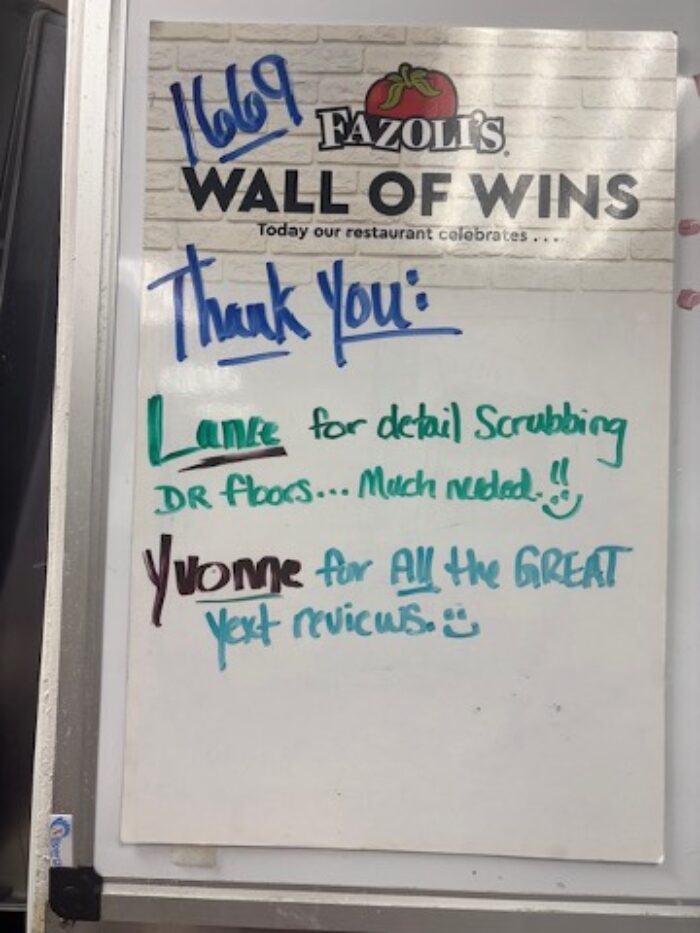 1669
FAZOLI'S
WALL OF WINS
Today our restaurant celebrates...
Thank You:
Lance for detail Scrubbing
DR floors... Much needed.!!
Yvonne for All the GREAT
Yext reviews.